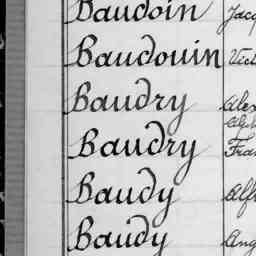 Baudoin Jacq
Baudouin Vict
Baudry Alex
Baudry Fran
Baudy Alf
Baudy Ang